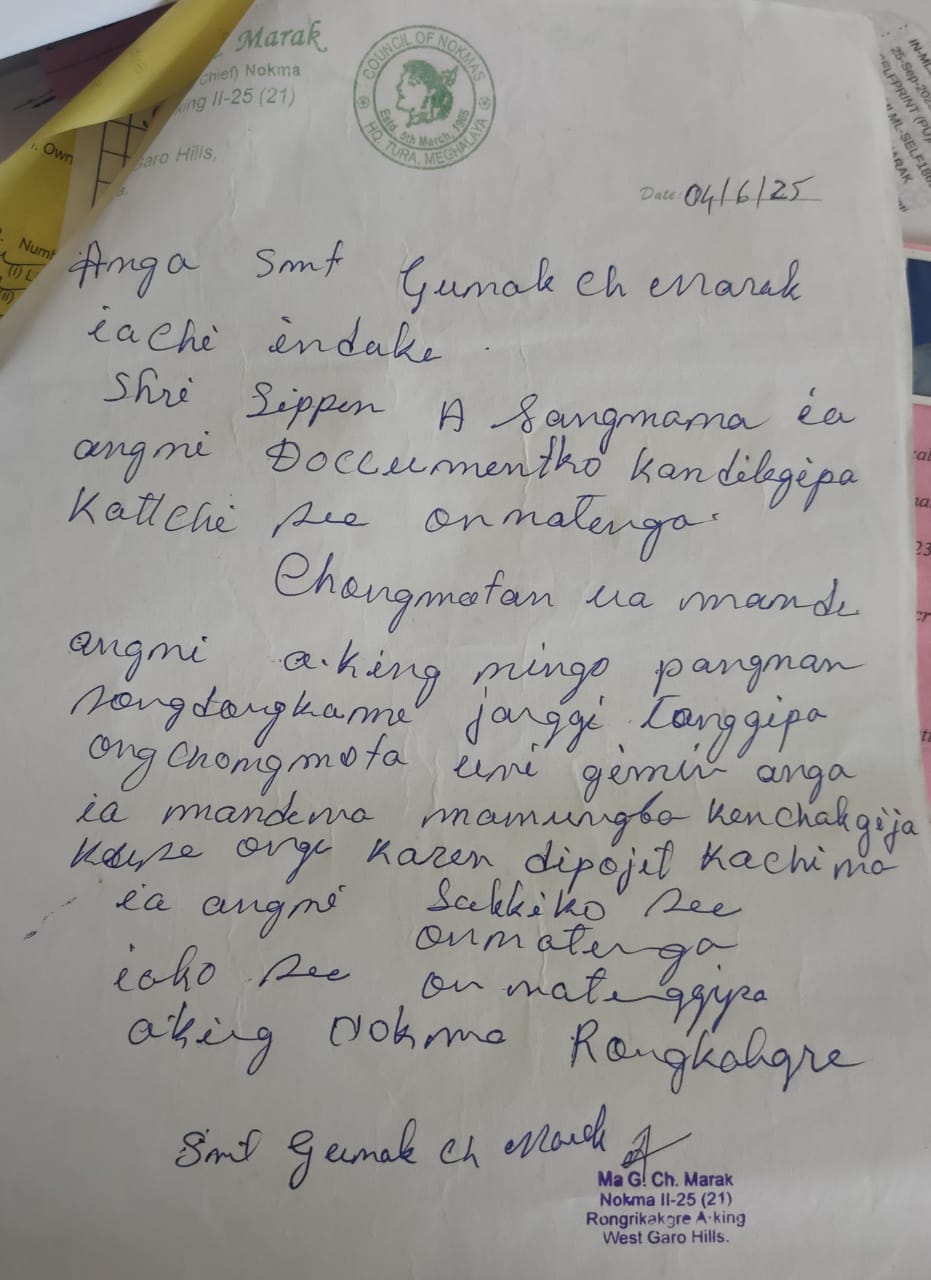 Marak
Chief) Nokma
king II-25 (21)
Garo Hills,
COUNCIL OF NOKMAS
Estd. 5th March, 1965
HQ. TURA, MEGHALAYA
Date: 04/6/25
Anga Smt Gumak Ch Marak
iachi indake.
Shri Sippen A Sangmama ia
angni Doccumentko kandikgipa
Kattchi see onmatenga.
Chongmotan ua mande
angni a.king ningo pangnan
songdongkame janggi tanggipa
ongchongmota uni gimin anga
ia mandena mamungba kenchakgija
ongi kazen dipojit kachina
ia angni Sakkiko see
onmatenga
iako see onmatenggipa
a'king Nokma Rongkakgre
Smt Gumak Ch Marak
Ma G. Ch. Marak
Nokma II-25 (21)
Rongrikakgre A·king
West Garo Hills.
. Own
Numb
(i) L
(ii)
25-Sep-202
ARAK
23